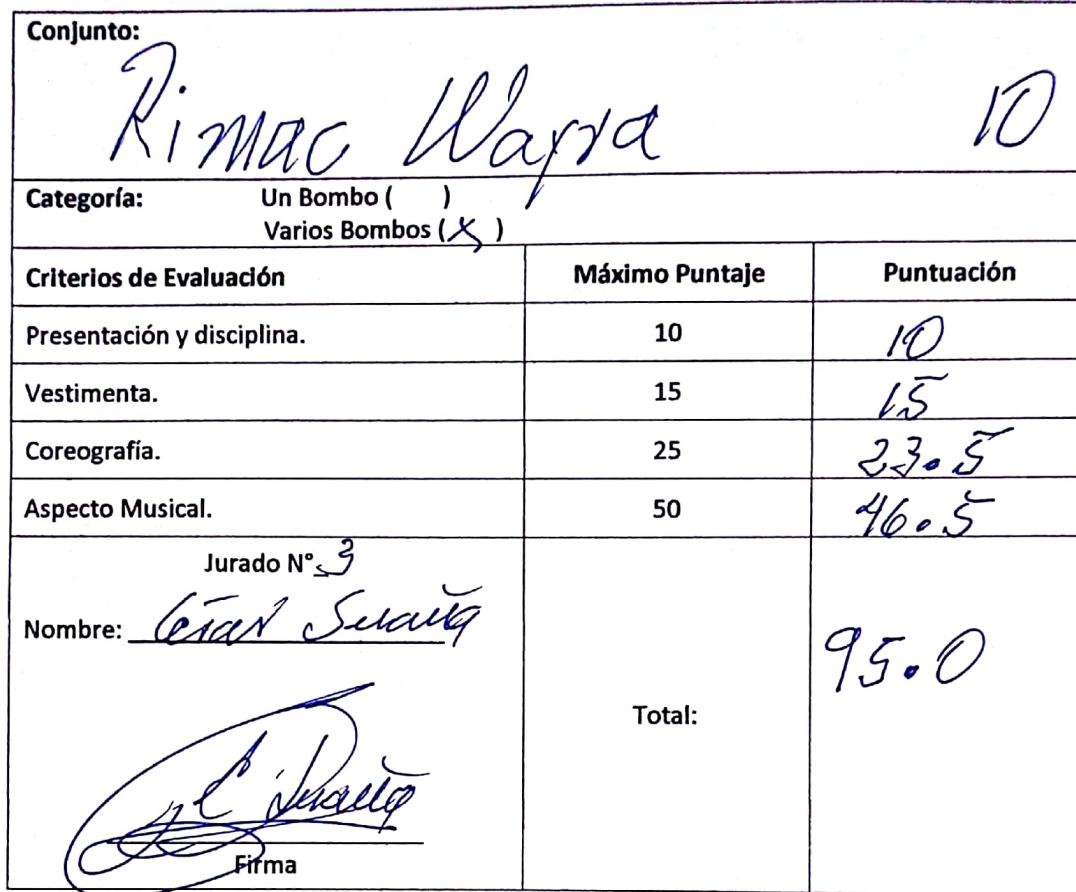 Conjunto:
Rimac Wayra 10
Categoría: Un Bombo ( )
Varios Bombos (X)
Criterios de Evaluación Máximo Puntaje Puntuación
Presentación y disciplina. 10 10
Vestimenta. 15 15
Coreografía. 25 23.5
Aspecto Musical. 50 46.5
Jurado N° 3
Nombre: César
Total: 95.0
Firma